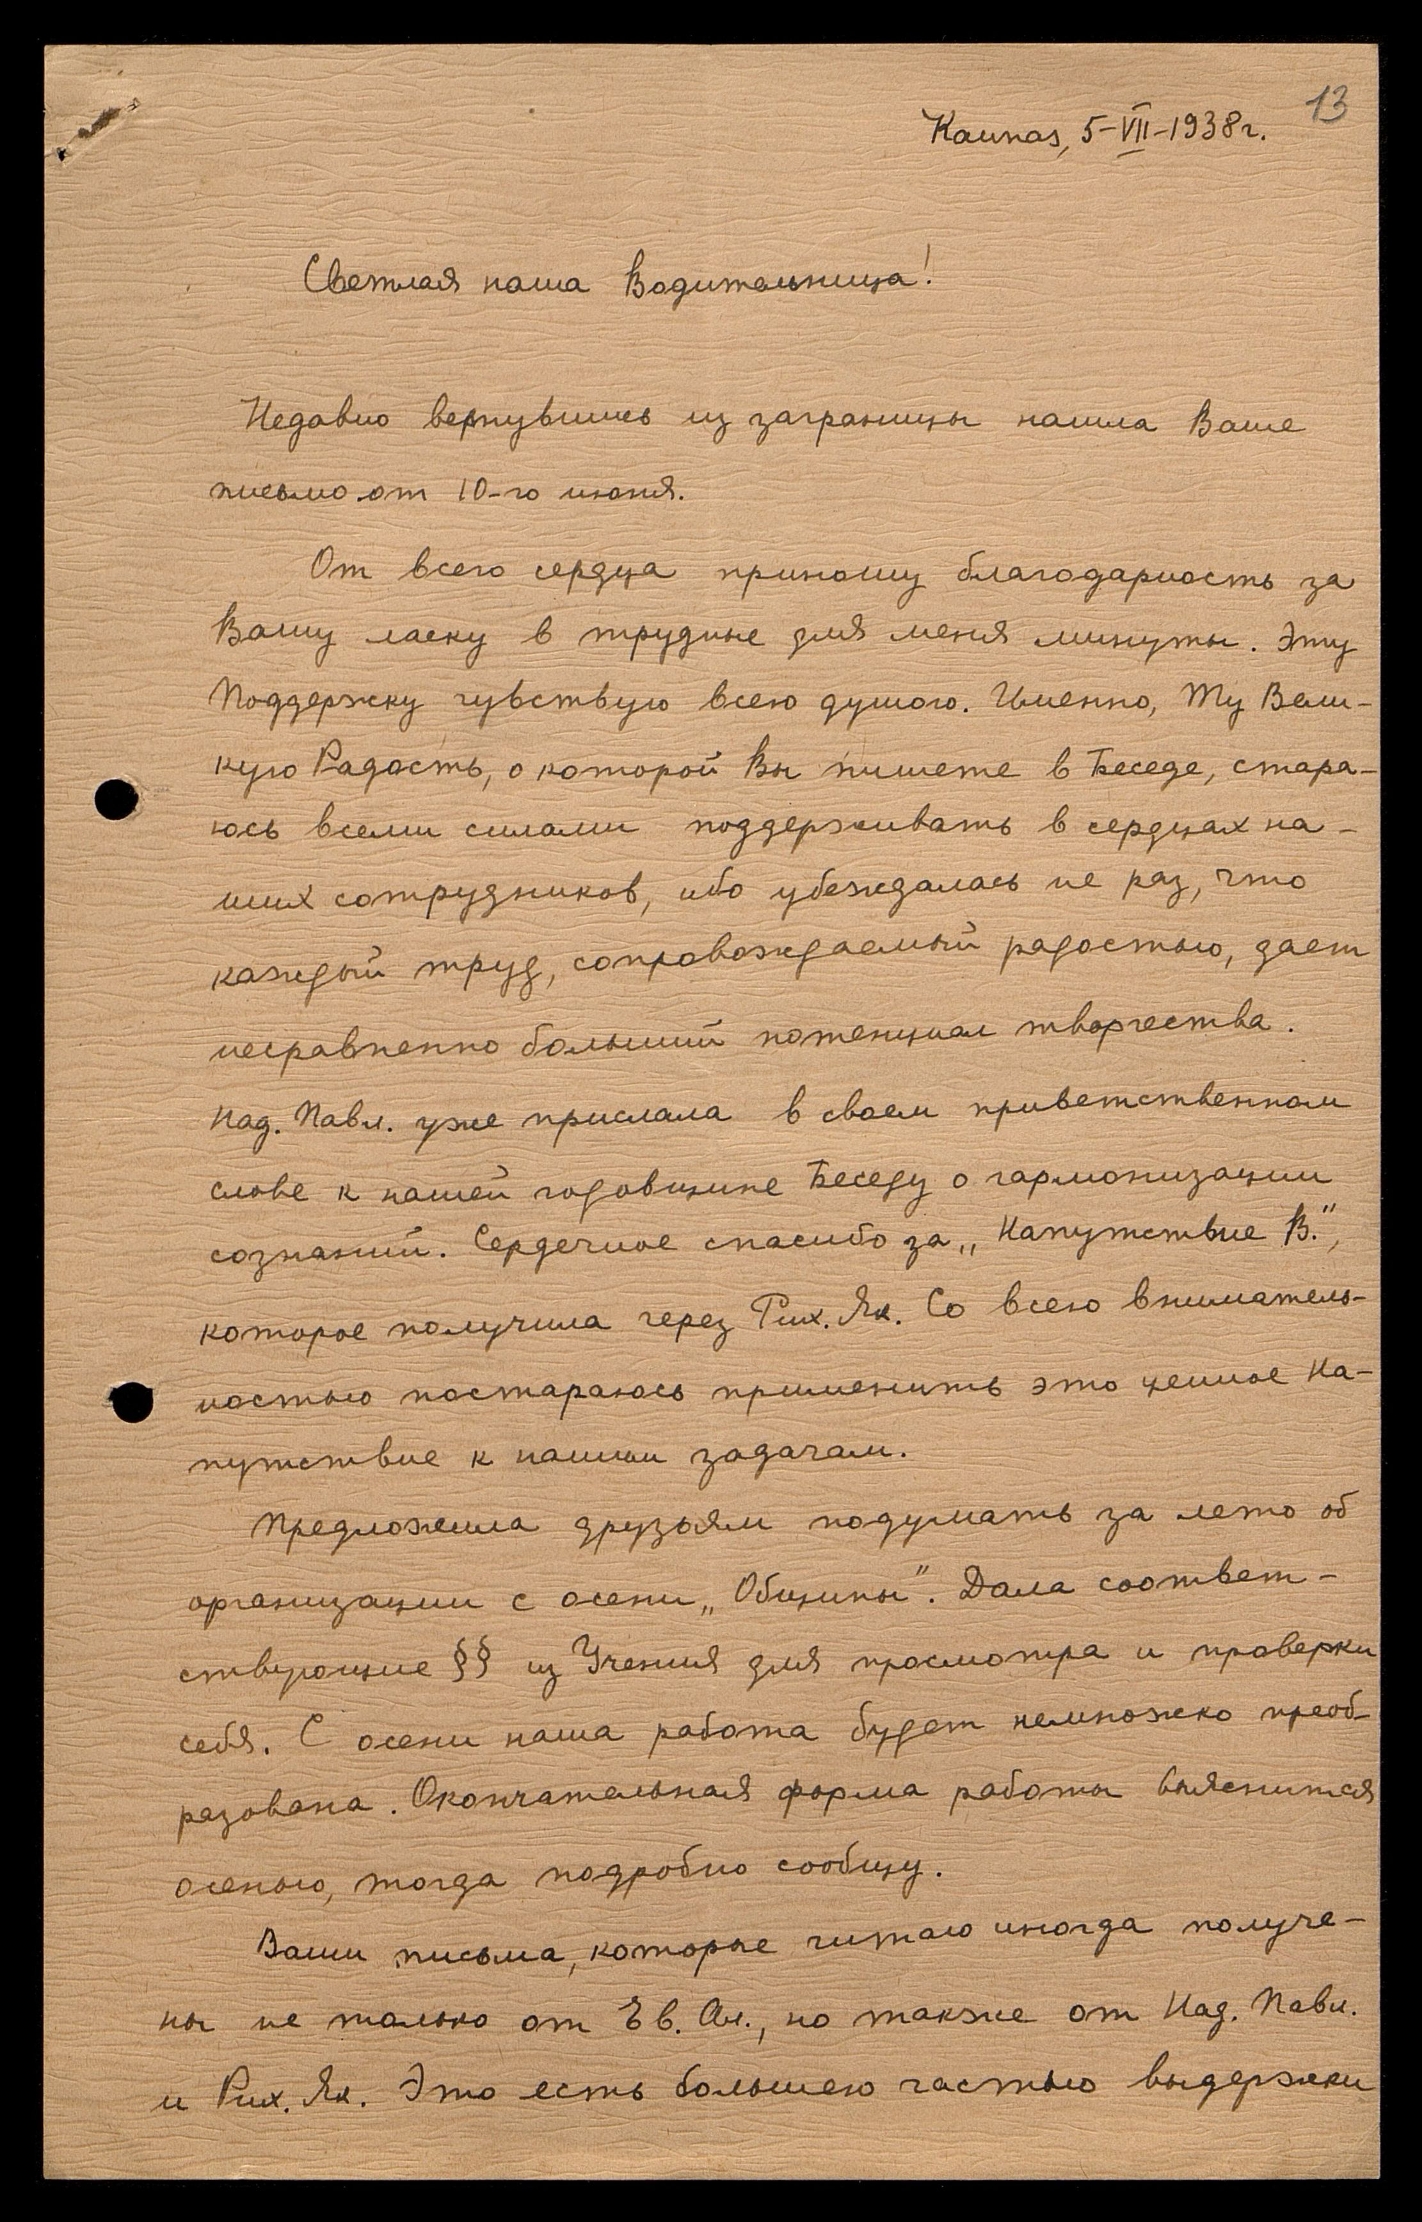 13
Kaunas, 5-VII-1938г.
Светлая наша Водительница!
Недавно вернувшись из заграницы нашла Ваше
письмо от 10-го июня.
От всего сердца приношу благодарность за
Вашу ласку в трудные для меня минуты. Эту
Поддержку чувствую всею душою. Именно, Ту Вели-
кую Радость, о которой Вы пишете в Беседе, стара-
юсь всеми силами поддерживать в сердцах на-
ших сотрудников, ибо убеждалась не раз, что
каждый труд, сопровождаемый радостью, дает
несравненно больший потенциал творчества.
Над. Павл. уже прислала в своем приветственном
слове к нашей годовщине Беседу о гармонизации
сознаний. Сердечное спасибо за „Напутствие В.",
которое получила через Рих. Як. Со всею вниматель-
ностью постараюсь применить это ценное На-
путствие к нашим задачам.
Предложила друзьям подумать за лето об
организации с осени „Общины". Дала соответ-
ствующие §§ из Учения для просмотра и проверки
себя. С осени наша работа будет немножко преоб-
разована. Окончательная форма работы выяснится
осенью, тогда подробно сообщу.
Ваши письма, которые читаю иногда получе-
ны не только от Ев. Ал., но также от Над. Павл.
и Рих. Як. Это есть большею частью выдержки